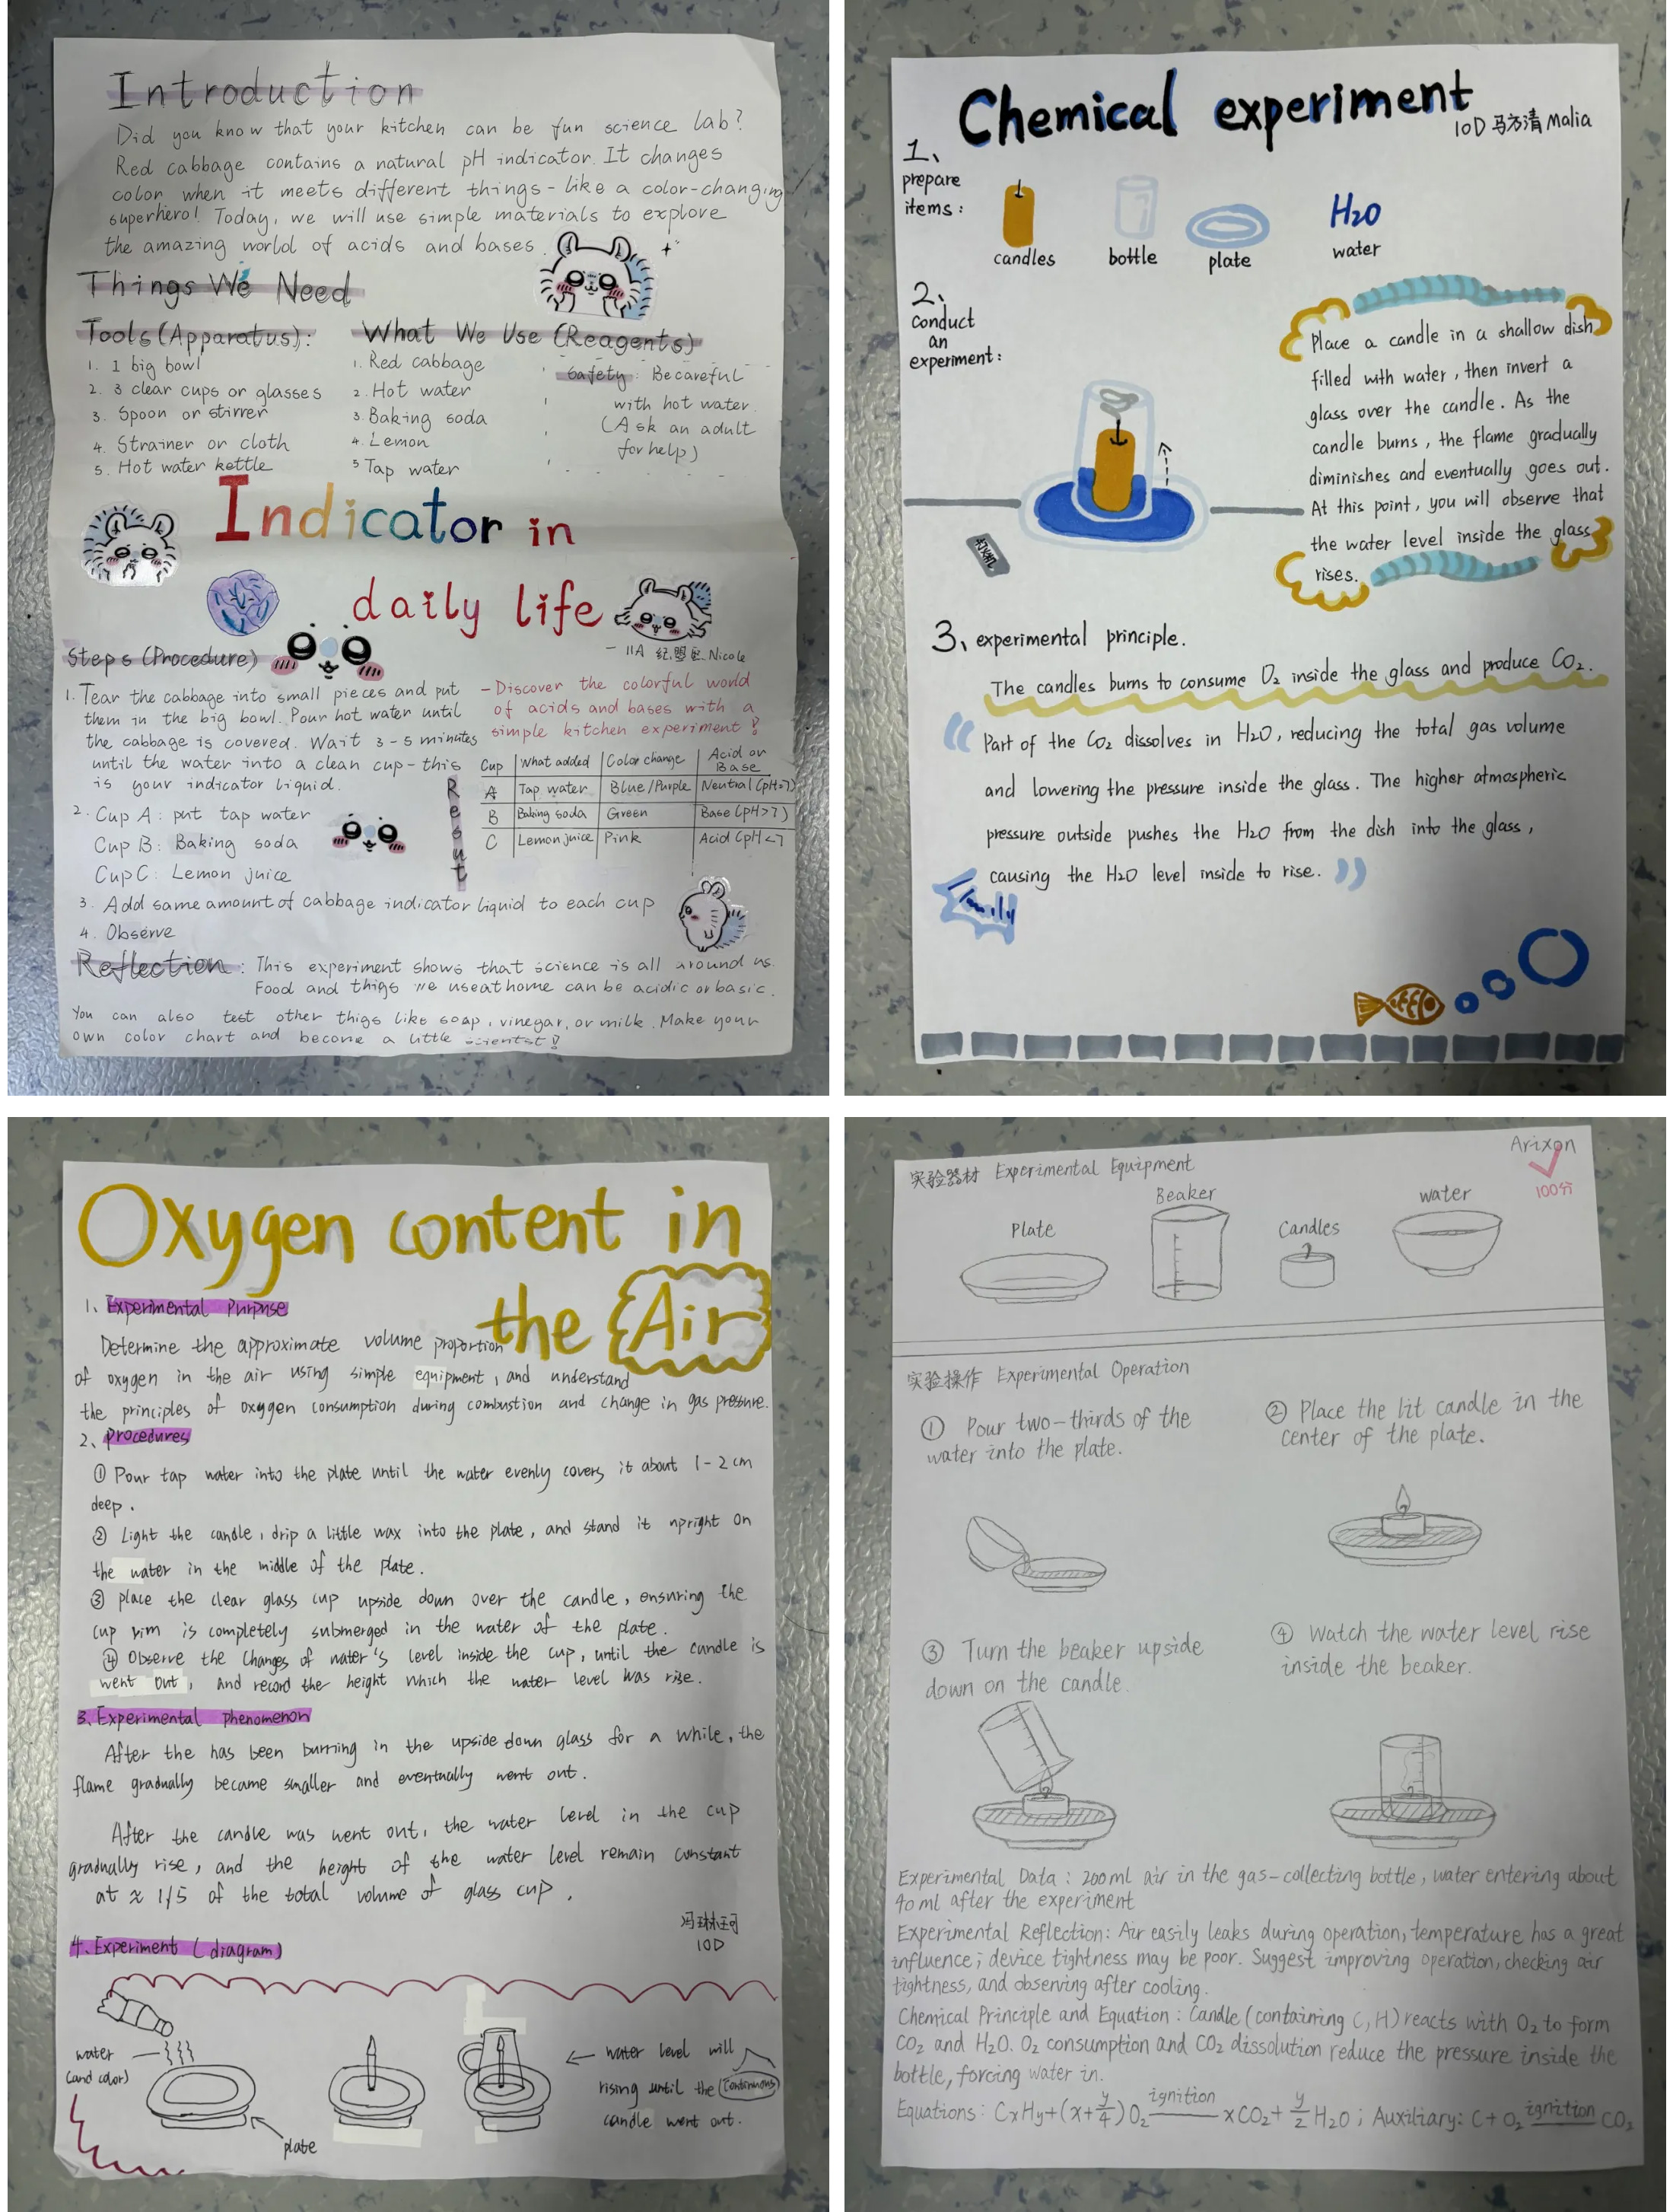 Introduction
Did you know that your kitchen can be fun science lab?
Red cabbage contains a natural pH indicator. It changes
color when it meets different things - like a color-changing
superhero! Today, we will use simple materials to explore
the amazing world of acids and bases.
Things We Need
Tools (Apparatus):
1. 1 big bowl
2. 3 clear cups or glasses
3. Spoon or stirrer
4. Strainer or cloth
5. Hot water kettle
What We Use (Reagents)
1. Red cabbage
2. Hot water
3. Baking soda
4. Lemon
5 Tap water
Safety: Be careful
with hot water.
(Ask an adult
for help)
Indicator in
daily life
- 11A Nicole
Steps (Procedure)
1. Tear the cabbage into small pieces and put
them in the big bowl. Pour hot water until
the cabbage is covered. Wait 3-5 minutes
until the water into a clean cup - this
is your indicator liquid.
2. Cup A: put tap water
Cup B: Baking soda
Cup C: Lemon juice
3. Add same amount of cabbage indicator liquid to each cup
4. Observe
- Discover the colorful world
of acids and bases with a
simple kitchen experiment!
Resut
Cup What added Color change Acid or Base
A Tap water Blue/Purple Neutral (pH=7)
B Baking soda Green Base (pH>7)
C Lemon juice Pink Acid (pH<7
Reflection: This experiment shows that science is all around us.
Food and thigs we use at home can be acidic or basic.
You can also test other thigs like soap, vinegar, or milk. Make your
own color chart and become a little scientst!
Chemical experiment
10D 马方清 Malia
1、
prepare
items:
candles
bottle
plate
H2O
water
2、
conduct
an
experiment:
Place a candle in a shallow dish
filled with water, then invert a
glass over the candle. As the
candle burns, the flame gradually
diminishes and eventually goes out.
At this point, you will observe that
the water level inside the glass
rises.
3、experimental principle.
The candles burns to consume O2 inside the glass and produce CO2.
Part of the CO2 dissolves in H2O, reducing the total gas volume
and lowering the pressure inside the glass. The higher atmospheric
pressure outside pushes the H2O from the dish into the glass,
causing the H2O level inside to rise.
Family
Oxygen content in
the Air
1、Experimental Purpose
Determine the approximate volume proportion
of oxygen in the air using simple equipment, and understand
the principles of oxygen consumption during combustion and change in gas pressure.
2、Procedures
① Pour tap water into the plate until the water evenly covers it about 1-2cm
deep.
② Light the candle, drip a little wax into the plate, and stand it upright on
the water in the middle of the plate.
③ place the clear glass cup upside down over the candle, ensuring the
cup rim is completely submerged in the water of the plate.
④ Observe the changes of water's level inside the cup, until the candle is
went out, and record the height which the water level was rise.
3. Experimental phenomenon
After the has been burning in the upside down glass for a while, the
flame gradually became smaller and eventually went out.
After the candle was went out, the water level in the cup
gradually rise, and the height of the water level remain constant
at ≈ 1/5 of the total volume of glass cup.
冯琳珂
10D
4. Experiment (diagram)
water
(and color)
plate
← water level will
rising until the continuous
candle went out.
Arixon
100分
实验器材 Experimental Equipment
Plate
Beaker
Candles
water
实验操作 Experimental Operation
① Pour two-thirds of the
water into the plate.
② Place the lit candle in the
center of the plate.
③ Turn the beaker upside
down on the candle.
④ Watch the water level rise
inside the beaker.
Experimental Data: 200ml air in the gas-collecting bottle, water entering about
40ml after the experiment
Experimental Reflection: Air easily leaks during operation, temperature has a great
influence; device tightness may be poor. Suggest improving operation, checking air
tightness, and observing after cooling.
Chemical Principle and Equation: Candle (containing C, H) reacts with O2 to form
CO2 and H2O. O2 consumption and CO2 dissolution reduce the pressure inside the
bottle, forcing water in.
Equations: CxHy+(x+y/4)O2 ignition xCO2+ y/2 H2O; Auxiliary: C+O2 ignition CO2